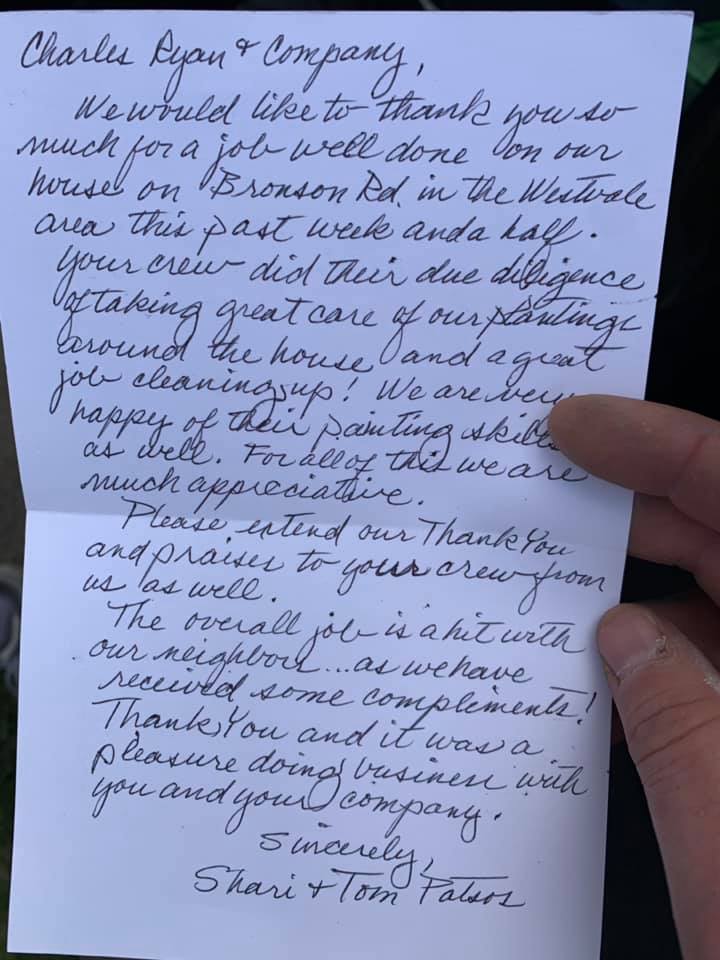 Charles Ryan & Company,
We would like to thank you so
much for a job well done on our
house on Bronson Rd. in the Westvale
area this past week and a half.
Your crew did their due diligence
of taking great care of our plantings
around the house and a great
job cleaning up! We are very
happy of their painting skills
as well. For all of this we are
much appreciative.
Please extend our Thank You
and praises to your crew from
us as well.
The overall job is a hit with
our neighbors...as we have
received some compliments!
Thank You and it was a
pleasure doing business with
you and your company.
Sincerely,
Shari & Tom Patsos